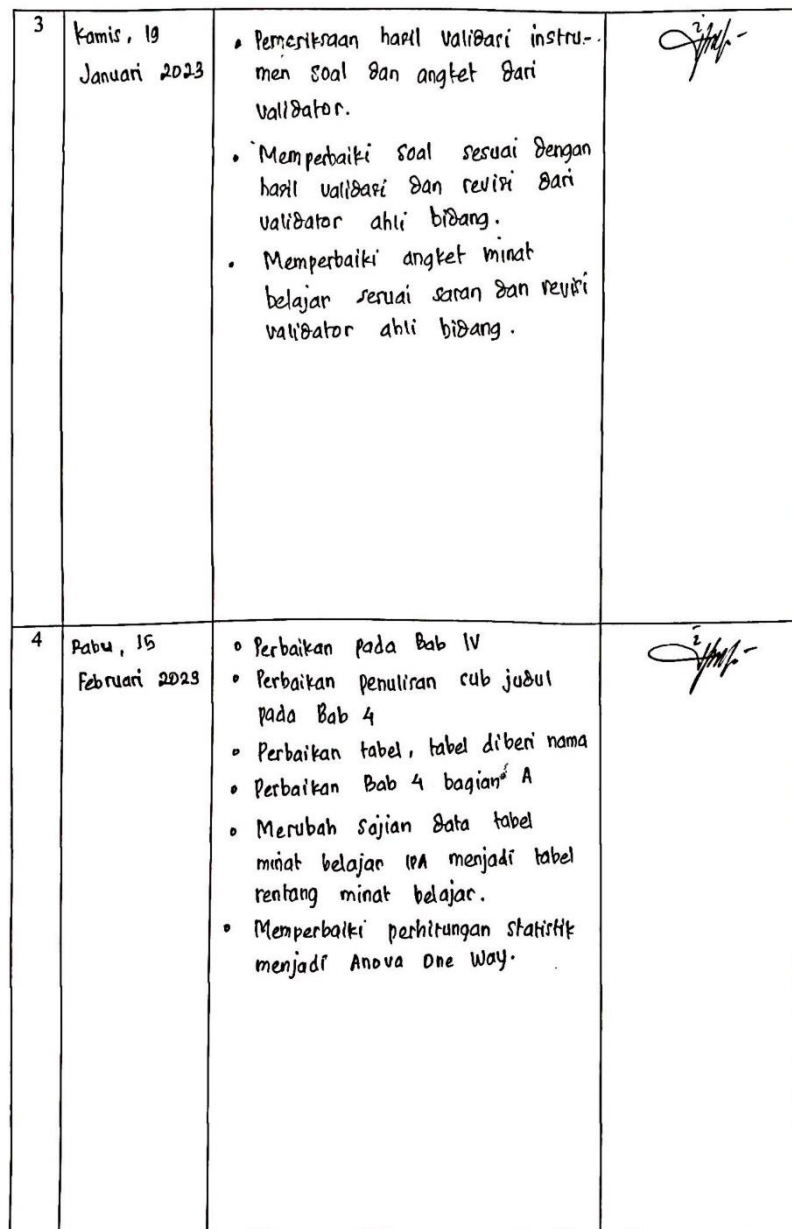 3
Kamis, 19
Januari 2023
• Pemeriksaan hasil validasi instru-
men soal dan angket dari
validator.
• Memperbaiki soal sesuai dengan
hasil validasi dan revisi dari
validator ahli bidang.
• Memperbaiki angket minat
belajar sesuai saran dan revisi
validator ahli bidang.
4
Rabu, 15
Februari 2023
• Perbaikan pada Bab IV
• Perbaikan penulisan sub judul
pada Bab 4
• Perbaikan tabel, tabel diberi nama
• Perbaikan Bab 4 bagian A
• Merubah sajian data tabel
minat belajar IPA menjadi tabel
rentang minat belajar.
• Memperbaiki perhitungan statistik
menjadi Anova One Way.